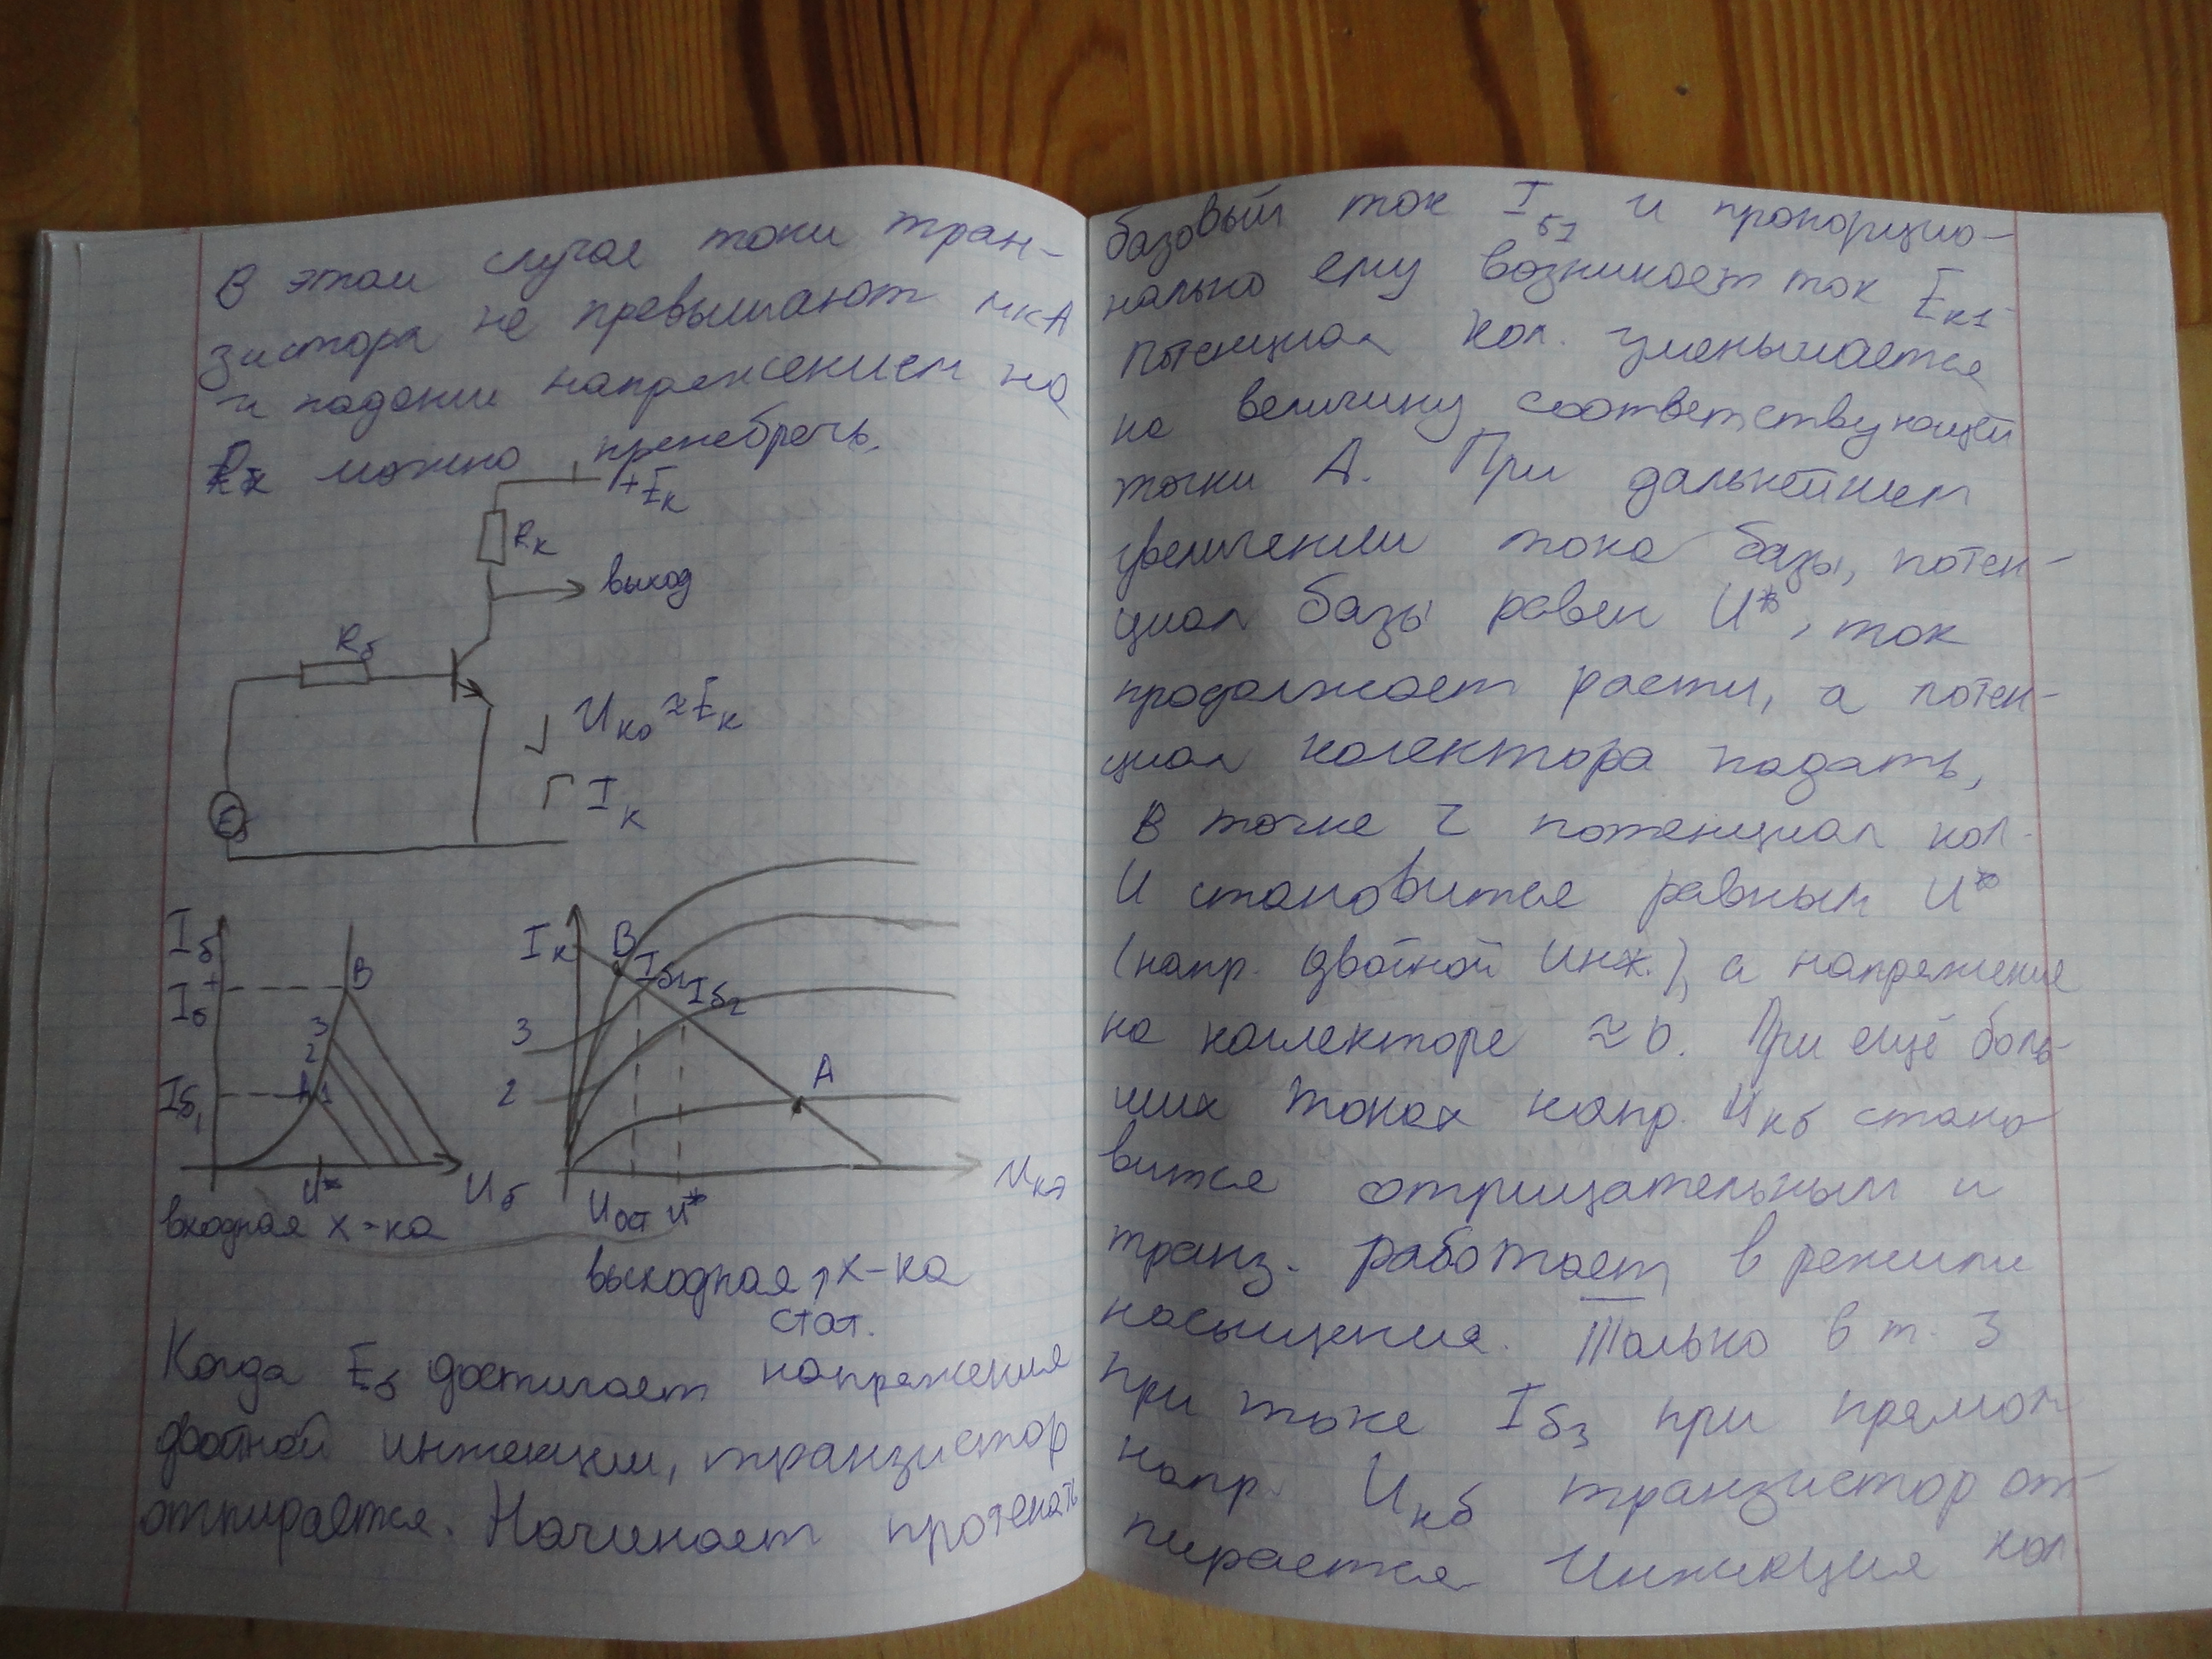 В этом случае токи тран-
зистора не превышают мкА
и падении напряжением на
Rк можно пренебречь.
+Eк
Rк
выход
Rб
Uко ≈ Eк
Iк
Eб
Iб
Iб+
Iб1
B
3
2
A1
U*
Uб
входная х-ка
Iк
B
Iб1
Iб2
3
2
A
Uост U*
Uкэ
выходная х-ка
стат.
Когда Eб достигает напряжения
двойной инжекции, транзистор
отпирается. Начинает протекать
базовый ток Iб1 и пропорцио-
нально ему возникает ток Eк1
Потенциал кол. уменьшается
на величину соответствующей
точки A. При дальнейшем
увеличении тока базы, потен-
циал базы равен U*, ток
продолжает расти, а потен-
циал колектора падать,
В точке 2 потенциал кол.
И становится равным U*
(напр. двойной инж.), а напряжение
на коллекторе ≈ 0. При ещё боль-
ших токах напр. Uкб стано
вится отрицательным и
транз. работает в режими
насыщения. Только в т. 3
при токе Iб3 при прямом
напр. Uкб транзистор от
пирается Инжекция кол.